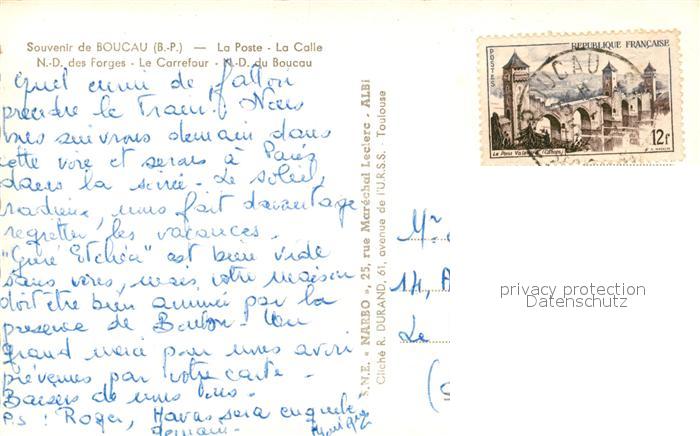 Souvenir de BOUCAU (B.-P.) — La Poste - La Calle
N.-D. des Forges - Le Carrefour - N.-D. du Boucau
Quel ennui de falloir
prendre le Train! Nous
vous suivrons demain dans
cette voie et serons à Paris
dans la soirée. Le soleil,
radieux, nous fait davantage
regretter les vacances.
"Guré Etchéa" est bien vide
sans vous, mais votre maison
doit être bien animée par la
présence de Boubou. Un
grand merci pour nous avoir
prévenus par votre carte.
Baisers de nous tous.
P.S : Roger, Havas sera
demain. Monique
S.N.E. « NARBO », 25, rue Maréchal Leclerc - ALBI
Cliché R. DURAND, 61, avenue de l'U.R.S.S. - Toulouse
REPUBLIQUE FRANÇAISE
POSTES
BOUCAU
12f
Le Pont Valentré (Cahors)
Mr
14, A
Le
privacy protection
Datenschutz